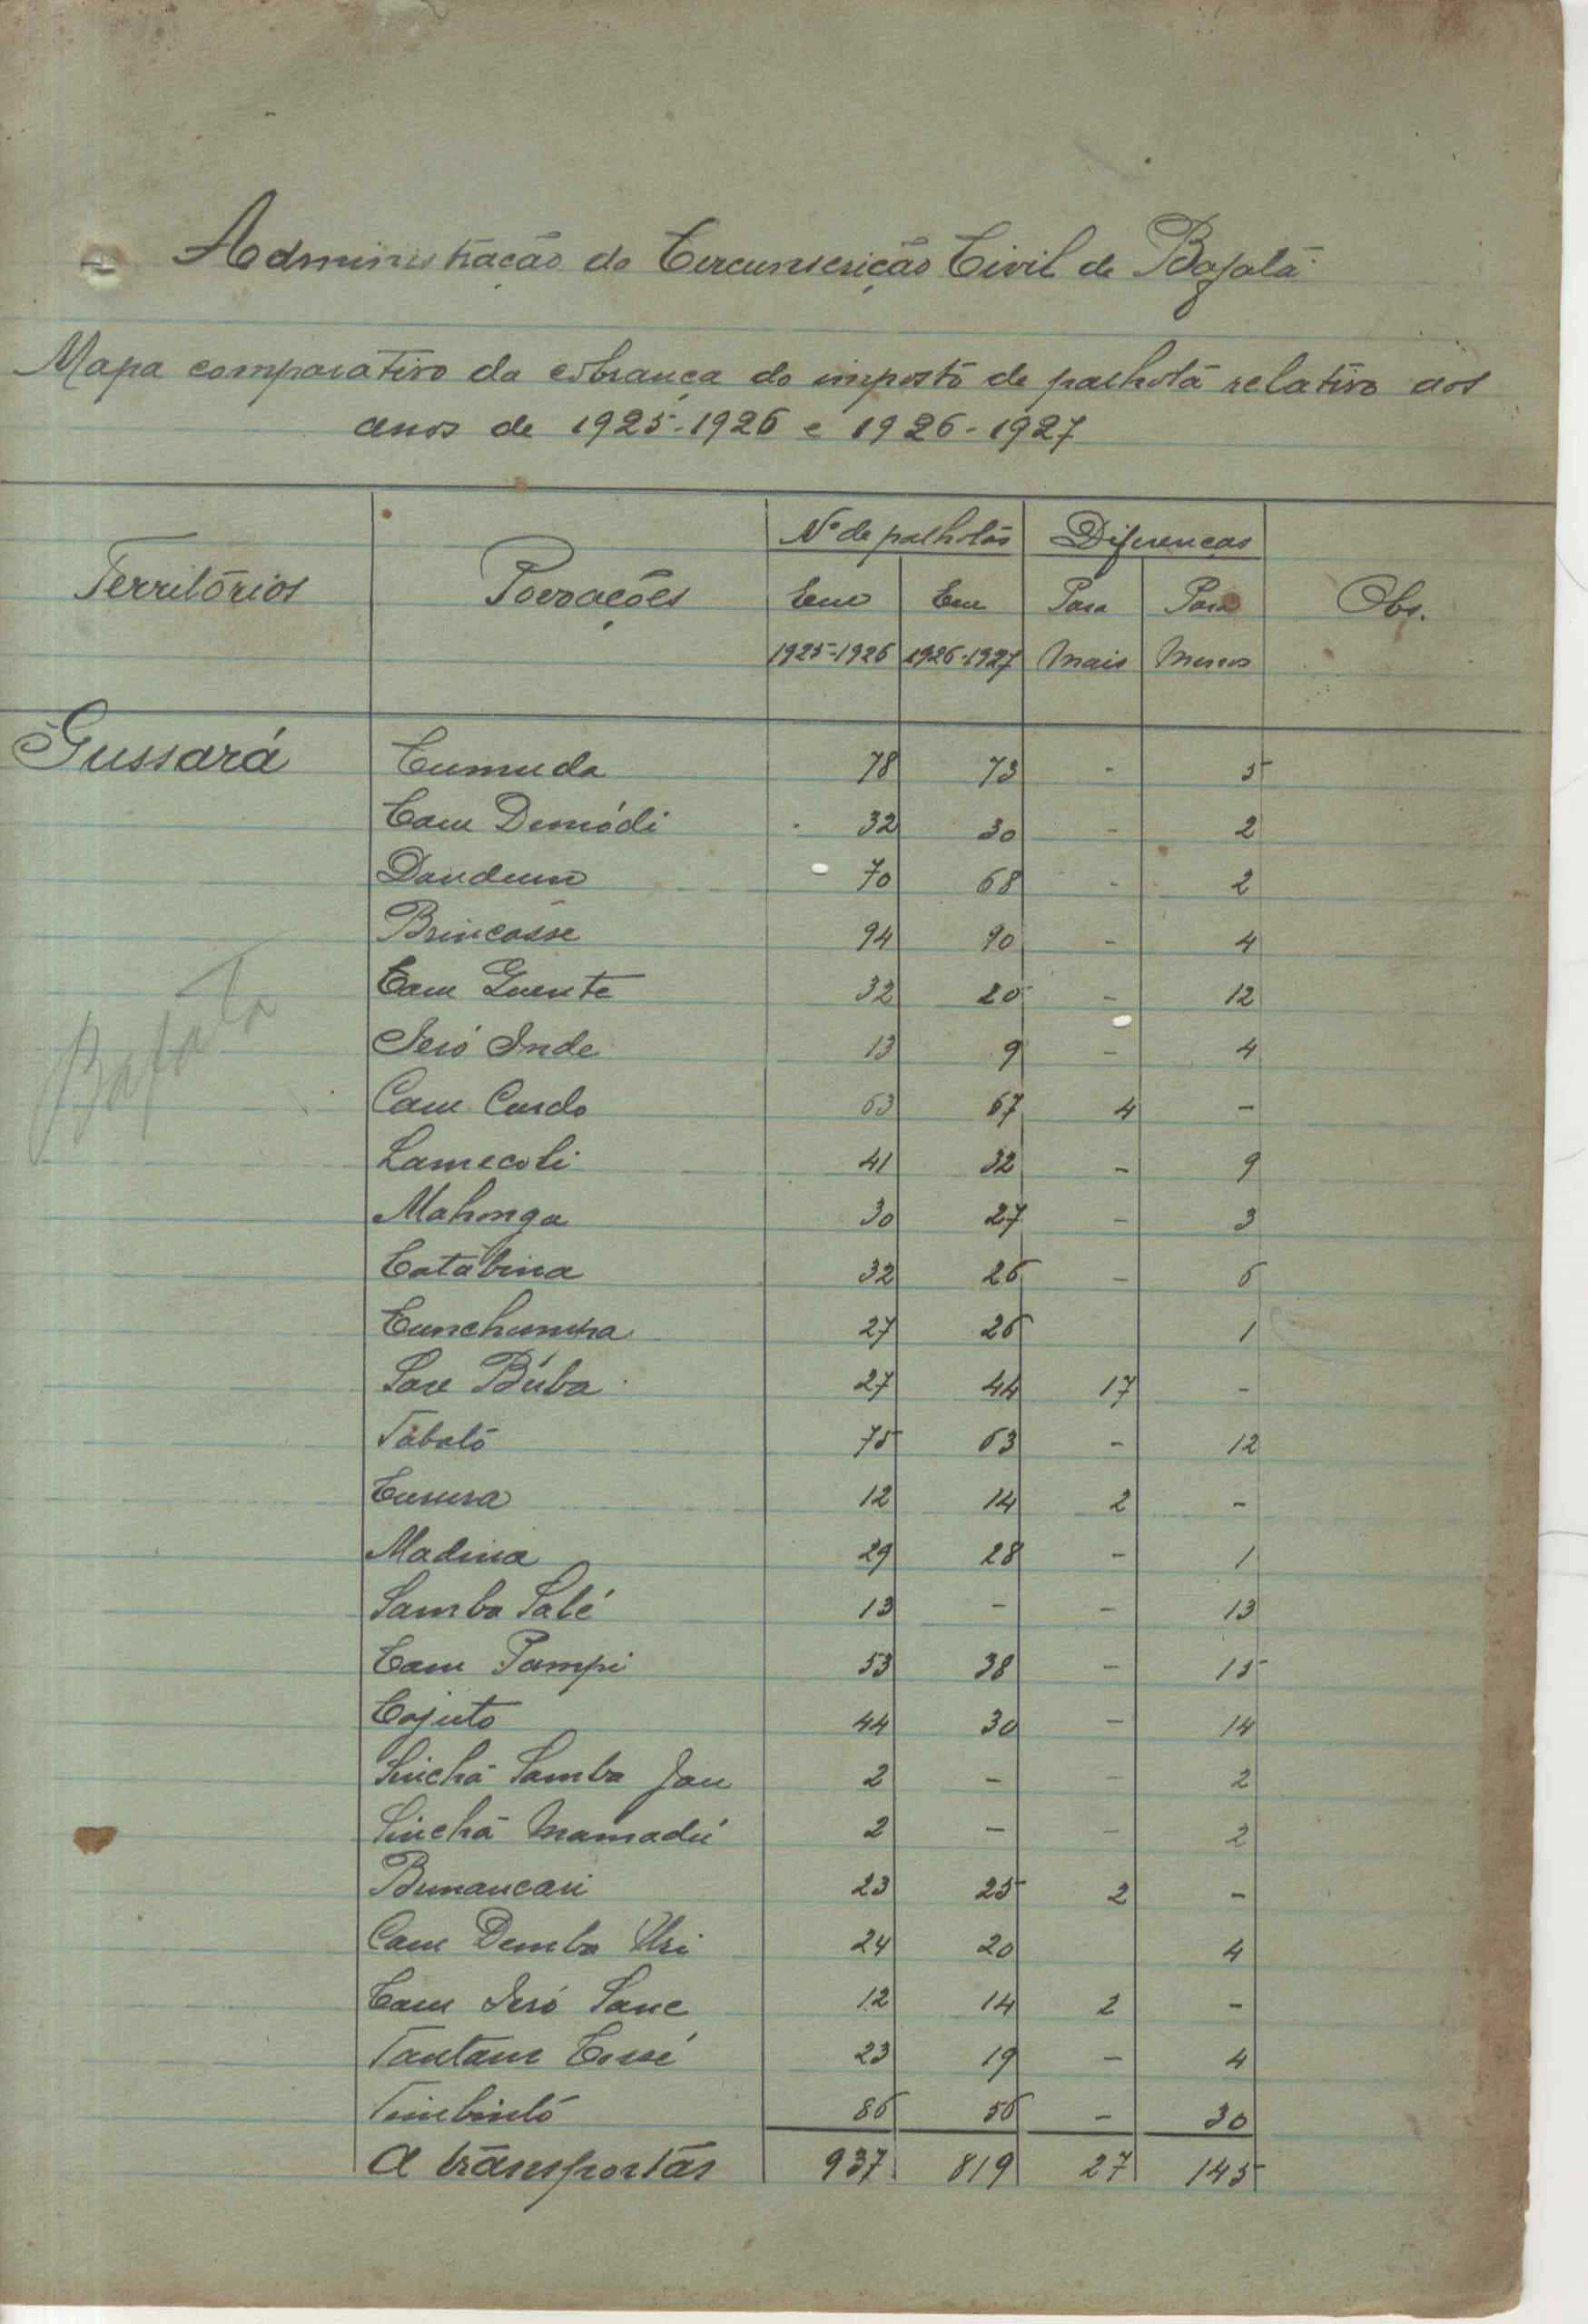 Administração da Circunscrição Civil de Bafatá
Mapa comparativo da cobrança do imposto de palhota relativo aos
anos de 1925-1926 e 1926-1927
Territórios Povoações Nº de palhotas Diferenças Obs.
Em Em Para Para
1925-1926 1926-1927 Mais Menos
Gussará Cumuda 78 73 - 5
Cam Demódi 32 30 - 2
Dandum 70 68 - 2
Brincasse 94 90 - 4
Cam Quente 32 20 - 12
Seió Inde 13 9 - 4
Cam Cando 63 67 4 -
Lamecoli 41 32 - 9
Mahonga 30 27 - 3
Catabina 32 26 - 6
27 26 1
Sare Búba 27 44 17 -
Tabató 75 63 - 12
12 14 2 -
Madina 29 28 - 1
Samba Salé 13 - - 13
Cam Pampi 53 38 - 15
Cajuto 44 30 - 14
Sinchã Samba Jau 2 - - 2
Sinchã Mamadú 2 - - 2
Bunancari 23 25 2 -
Cam Demba Uri 24 20 4
Cam Seró Sane 12 14 2 -
Tantam Cossé 23 19 - 4
Timbintó 86 56 - 30
A transportar 937 819 27 145
Bafatá